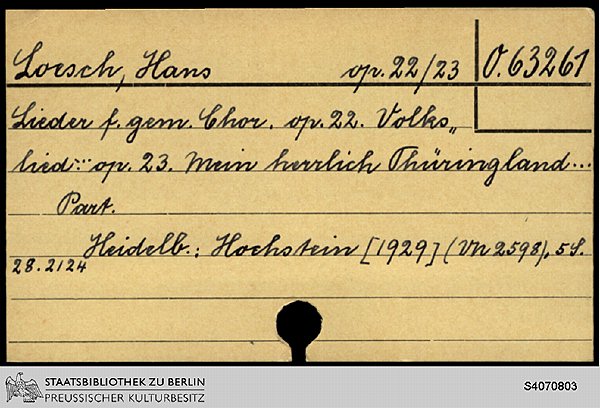 Loesch, Hans op. 22/23 O. 63261
Lieder f. gem. Chor. op. 22. Volks„
lied... op. 23. Mein herrlich Thüringland...
Part.
Heidelb.: Hochstein [1929] (VN 2598). 5 S.
28.2124
STAATSBIBLIOTHEK ZU BERLIN
PREUSSISCHER KULTURBESITZ
S4070803